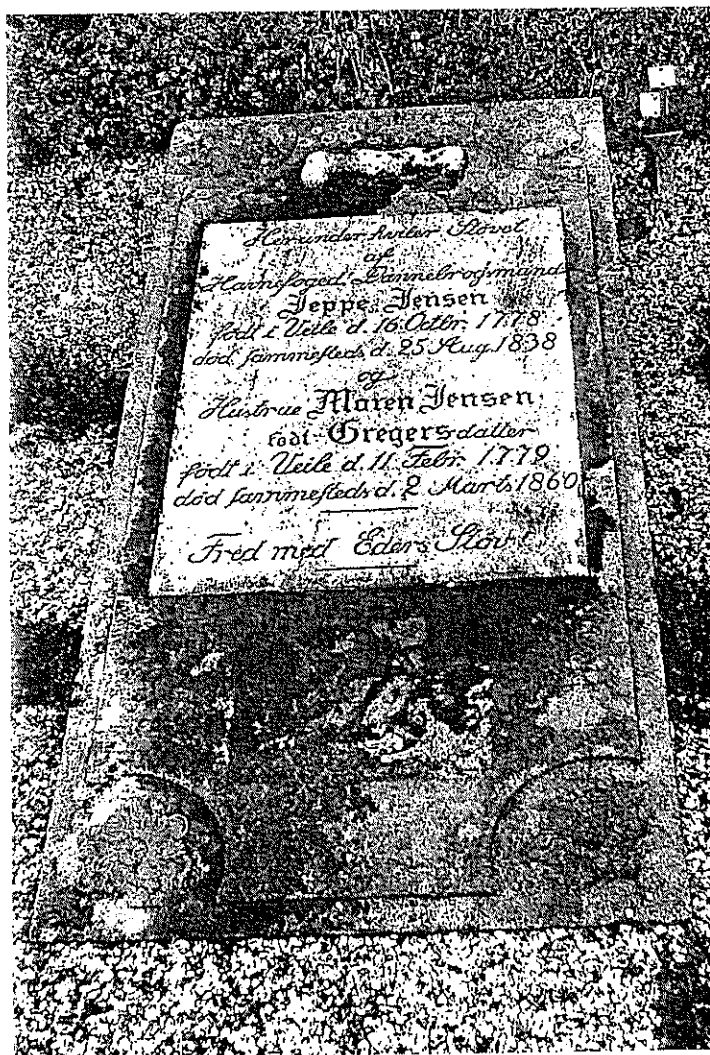 Herunder hviler Støvet
af
Havnefoged Dannebrogsmand
Jeppe Jensen
født i Veile d. 16 Octbr. 1778
død sammesteds d. 25 Aug. 1838
og
Hustrue Maren Jensen
født Gregersdatter
født i Veile d. 11 Febr. 1779
død sammesteds d. 2 Marts 1860
Fred med Eders Støv